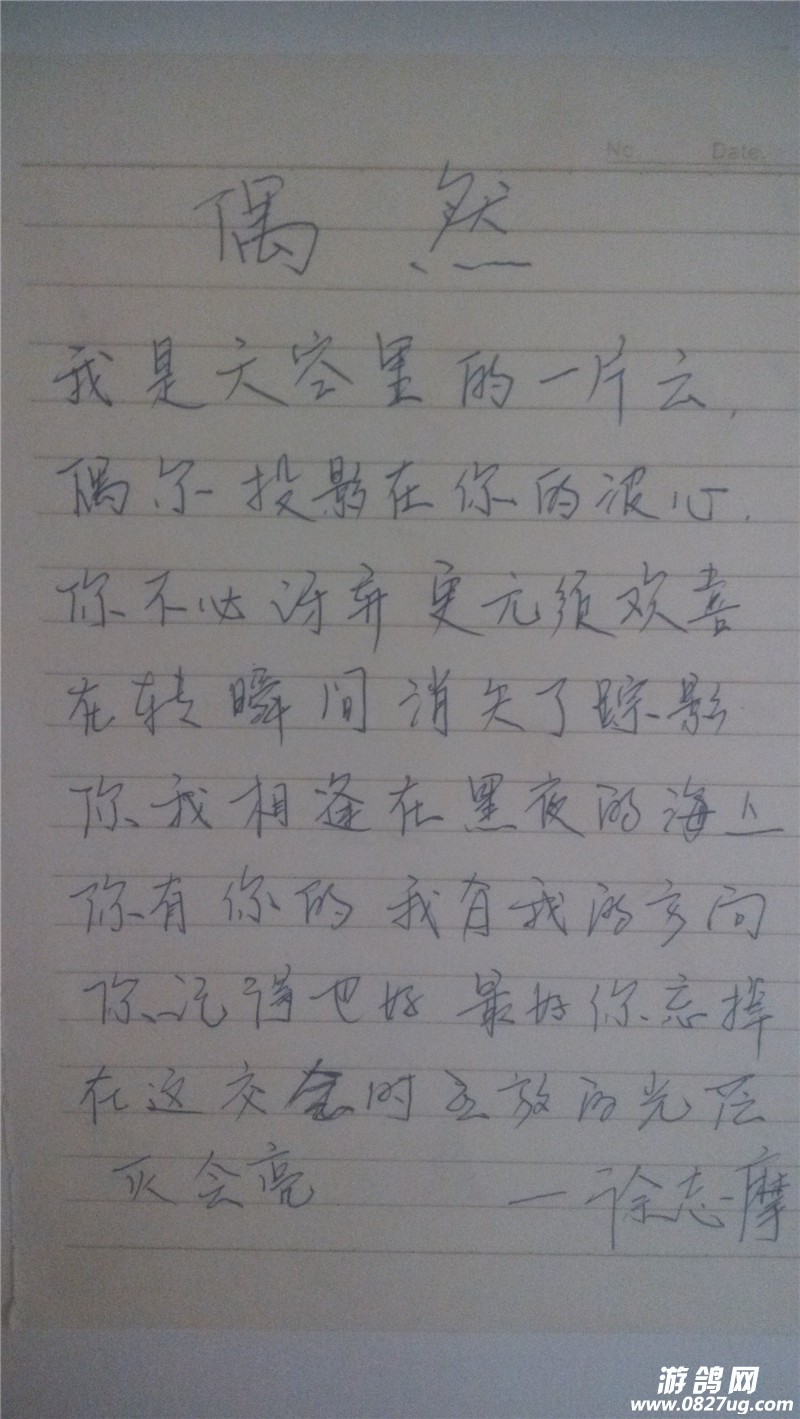 No. Date.
偶然
我是天空里的一片云,
偶尔投影在你的波心.
你不必讶弃更无须欢喜
在转瞬间消失了踪影
你我相逢在黑夜的海上
你有你的 我有我的方向
你记得也好 最好你忘掉
在这交会时互放的光
会亮
一徐志摩
游鸽网
www.0827ug.com